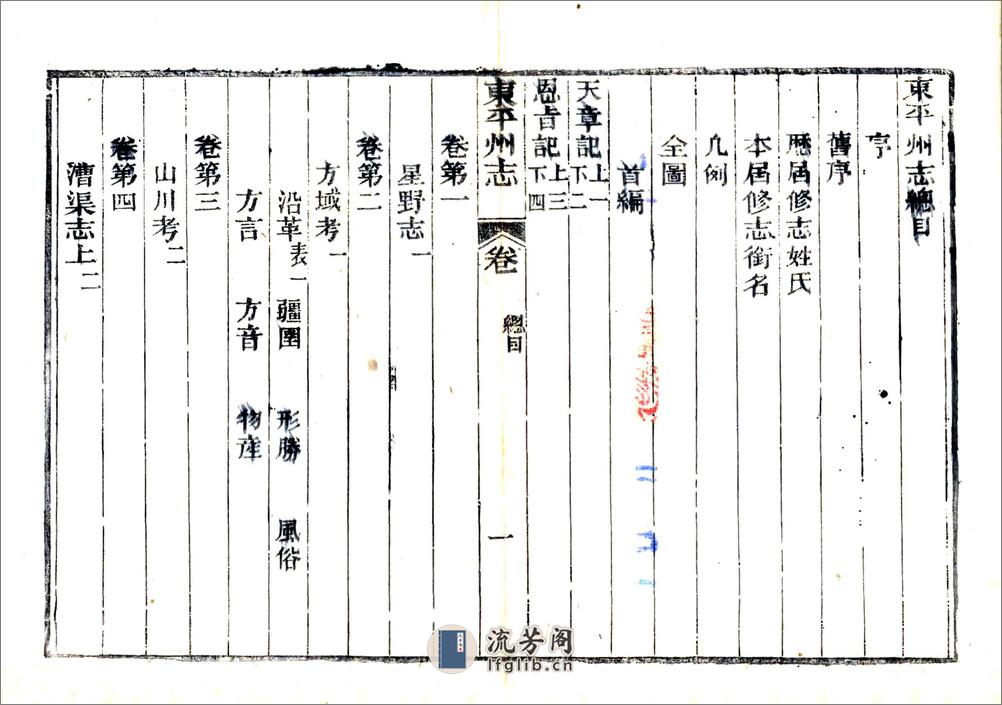 東平州志總目
序
舊序
歷屆修志姓氏
本屆修志銜名
凡例
全圖
首編
天章記上一
下二
恩旨記上三
下四
東平州志 卷 總目 一
卷第一
星野志一
卷第二
方域考一
沿革表一 疆圉 形勝 風俗
方言 方音 物產
卷第三
山川考二
卷第四
漕渠志上二
流芳阁
lfglib.cn